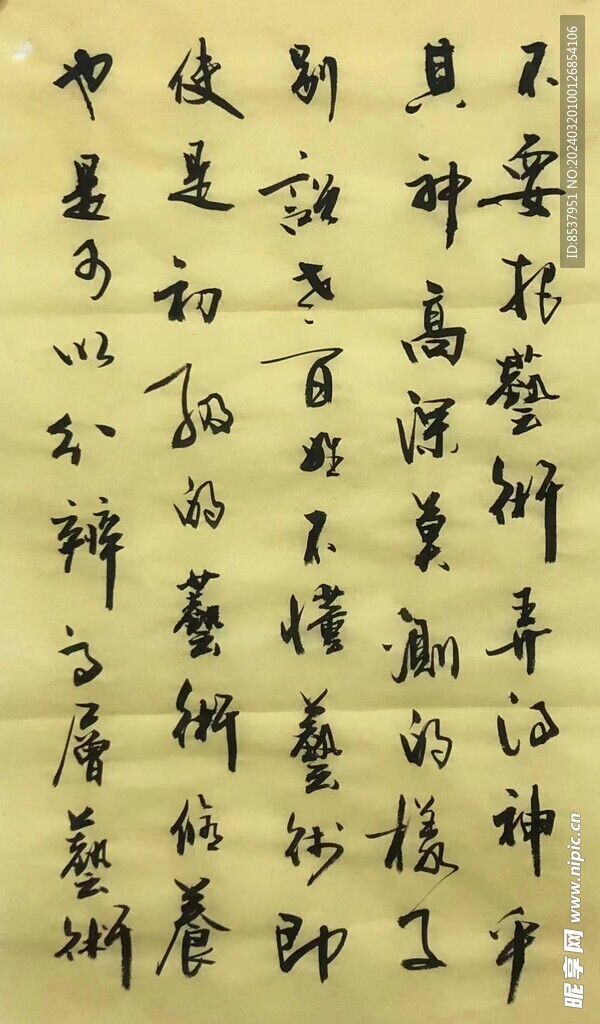 不要把藝術弄得神乎
其神高深莫測的樣子
別說老百姓不懂藝術即
使是初級的藝術修養
也是可以分辨高層藝術
ID:8537951 NO:20240320100126854106
昵享网 www.nipic.cn